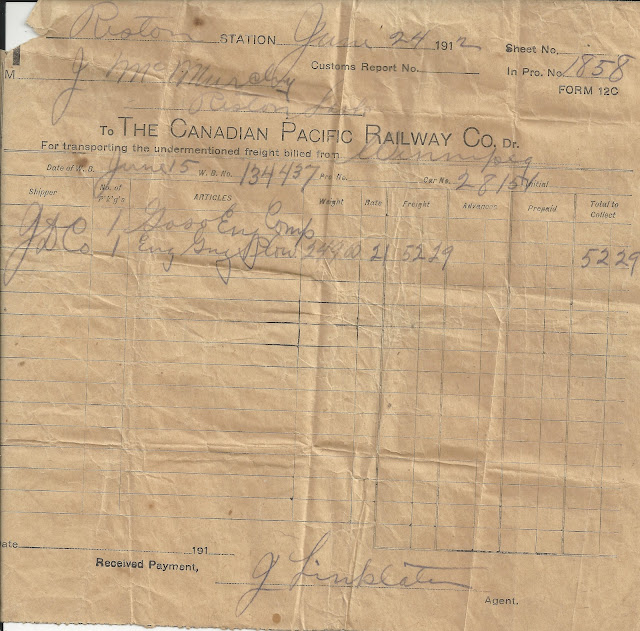 Reston STATION June 24 1912 Sheet No.
M J McMurchy Customs Report No. In Pro. No. 1858
Reston FORM 12C
To THE CANADIAN PACIFIC RAILWAY CO. Dr.
For transporting the undermentioned freight billed from Winnipeg
Date of W.B. June 15 W.B. No. 134437 Pro No. Car No. 28151 Initial
Shipper No. of P'k'g's ARTICLES Weight Rate Freight Advances Prepaid Total to Collect
1 Eng Comp
Co 1 Eng Plow 24900 21 5229 5229
ate 191
Received Payment,
J Linklater
Agent.